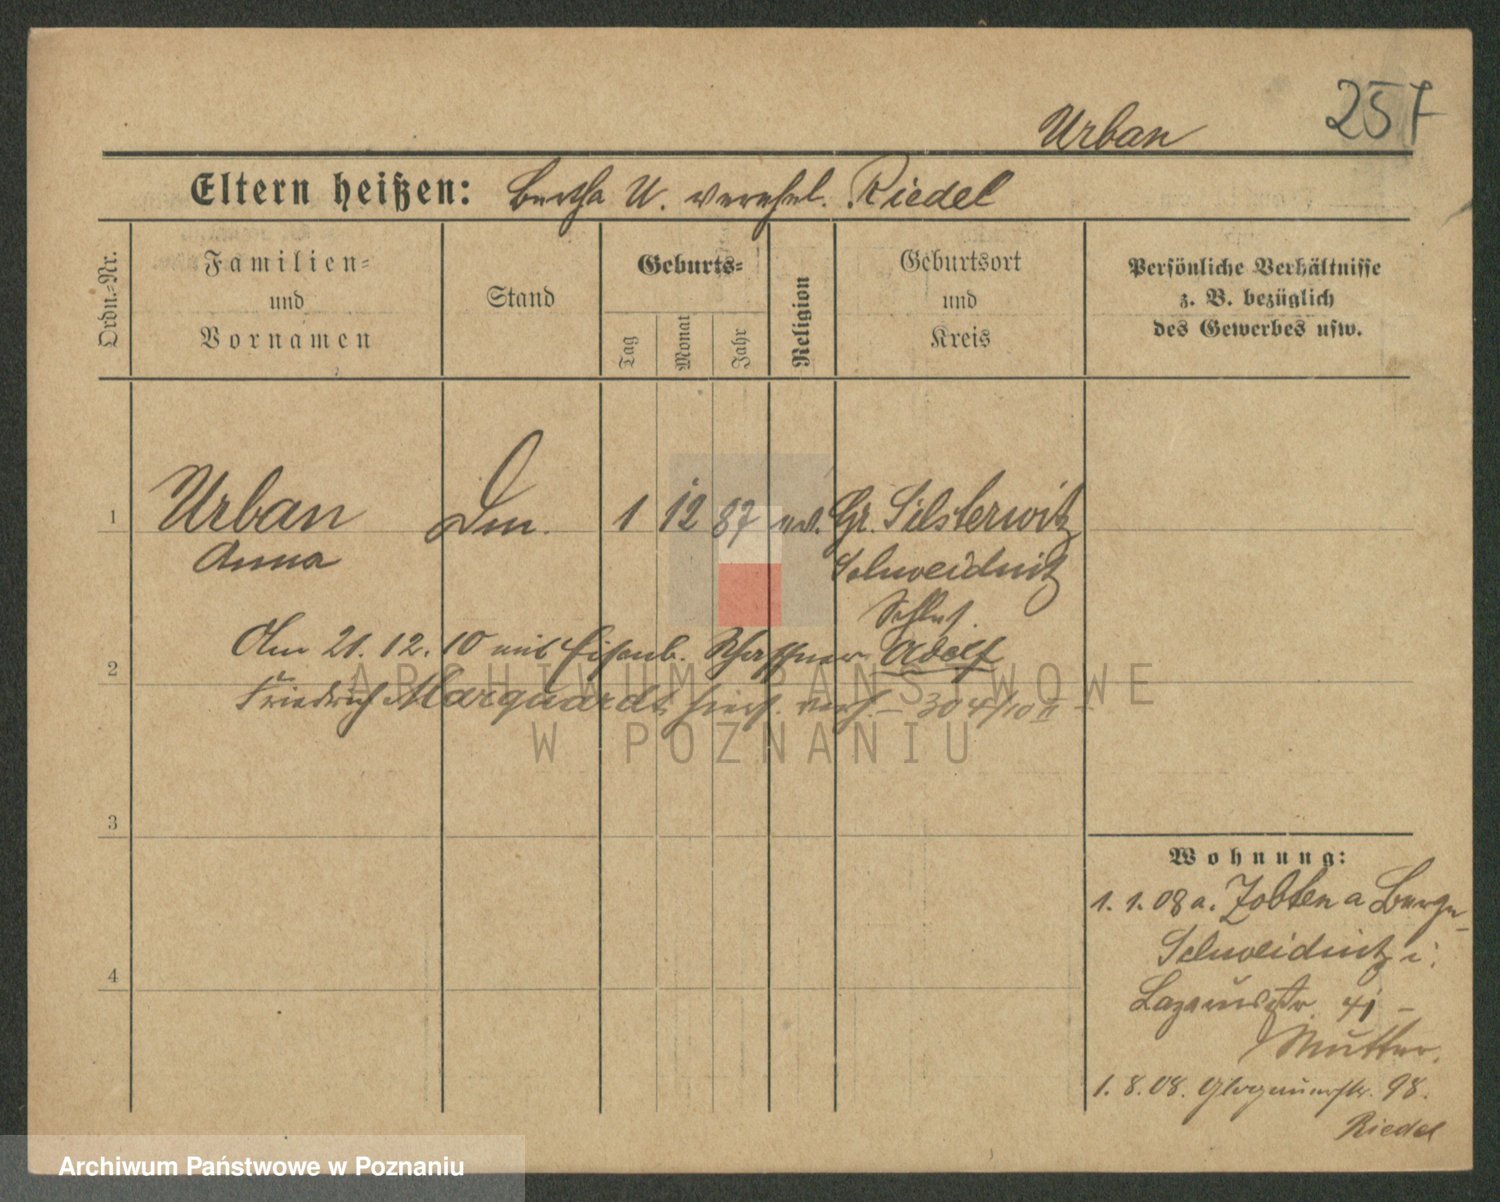 257
Urban
Eltern heißen: Bertha U. verehel. Riedel
Ordn.-Nr.
Familien-
und
Vornamen
Stand
Geburts-
Tag
Monat
Jahr
Religion
Geburtsort
und
Kreis
Persönliche Verhältnisse
z. B. bezüglich
des Gewerbes usw.
1 Urban 1 12 87 Gr. Silsterwitz
Anna Schweidnitz
Schles.
2 Am 21. 12. 10 mit Eisenb. Schaffner Adolf
Friedrich Marquardt hier verh. – 304/10 II –
3
4
Wohnung:
1. 1. 08 a. Zobten a Berge
Schweidnitz
Lazarusstr. 4
Mutter.
1. 8. 08. Glogauerstr. 98.
Riedel
ARCHIWUM PAŃSTWOWE
W POZNANIU
Archiwum Państwowe w Poznaniu